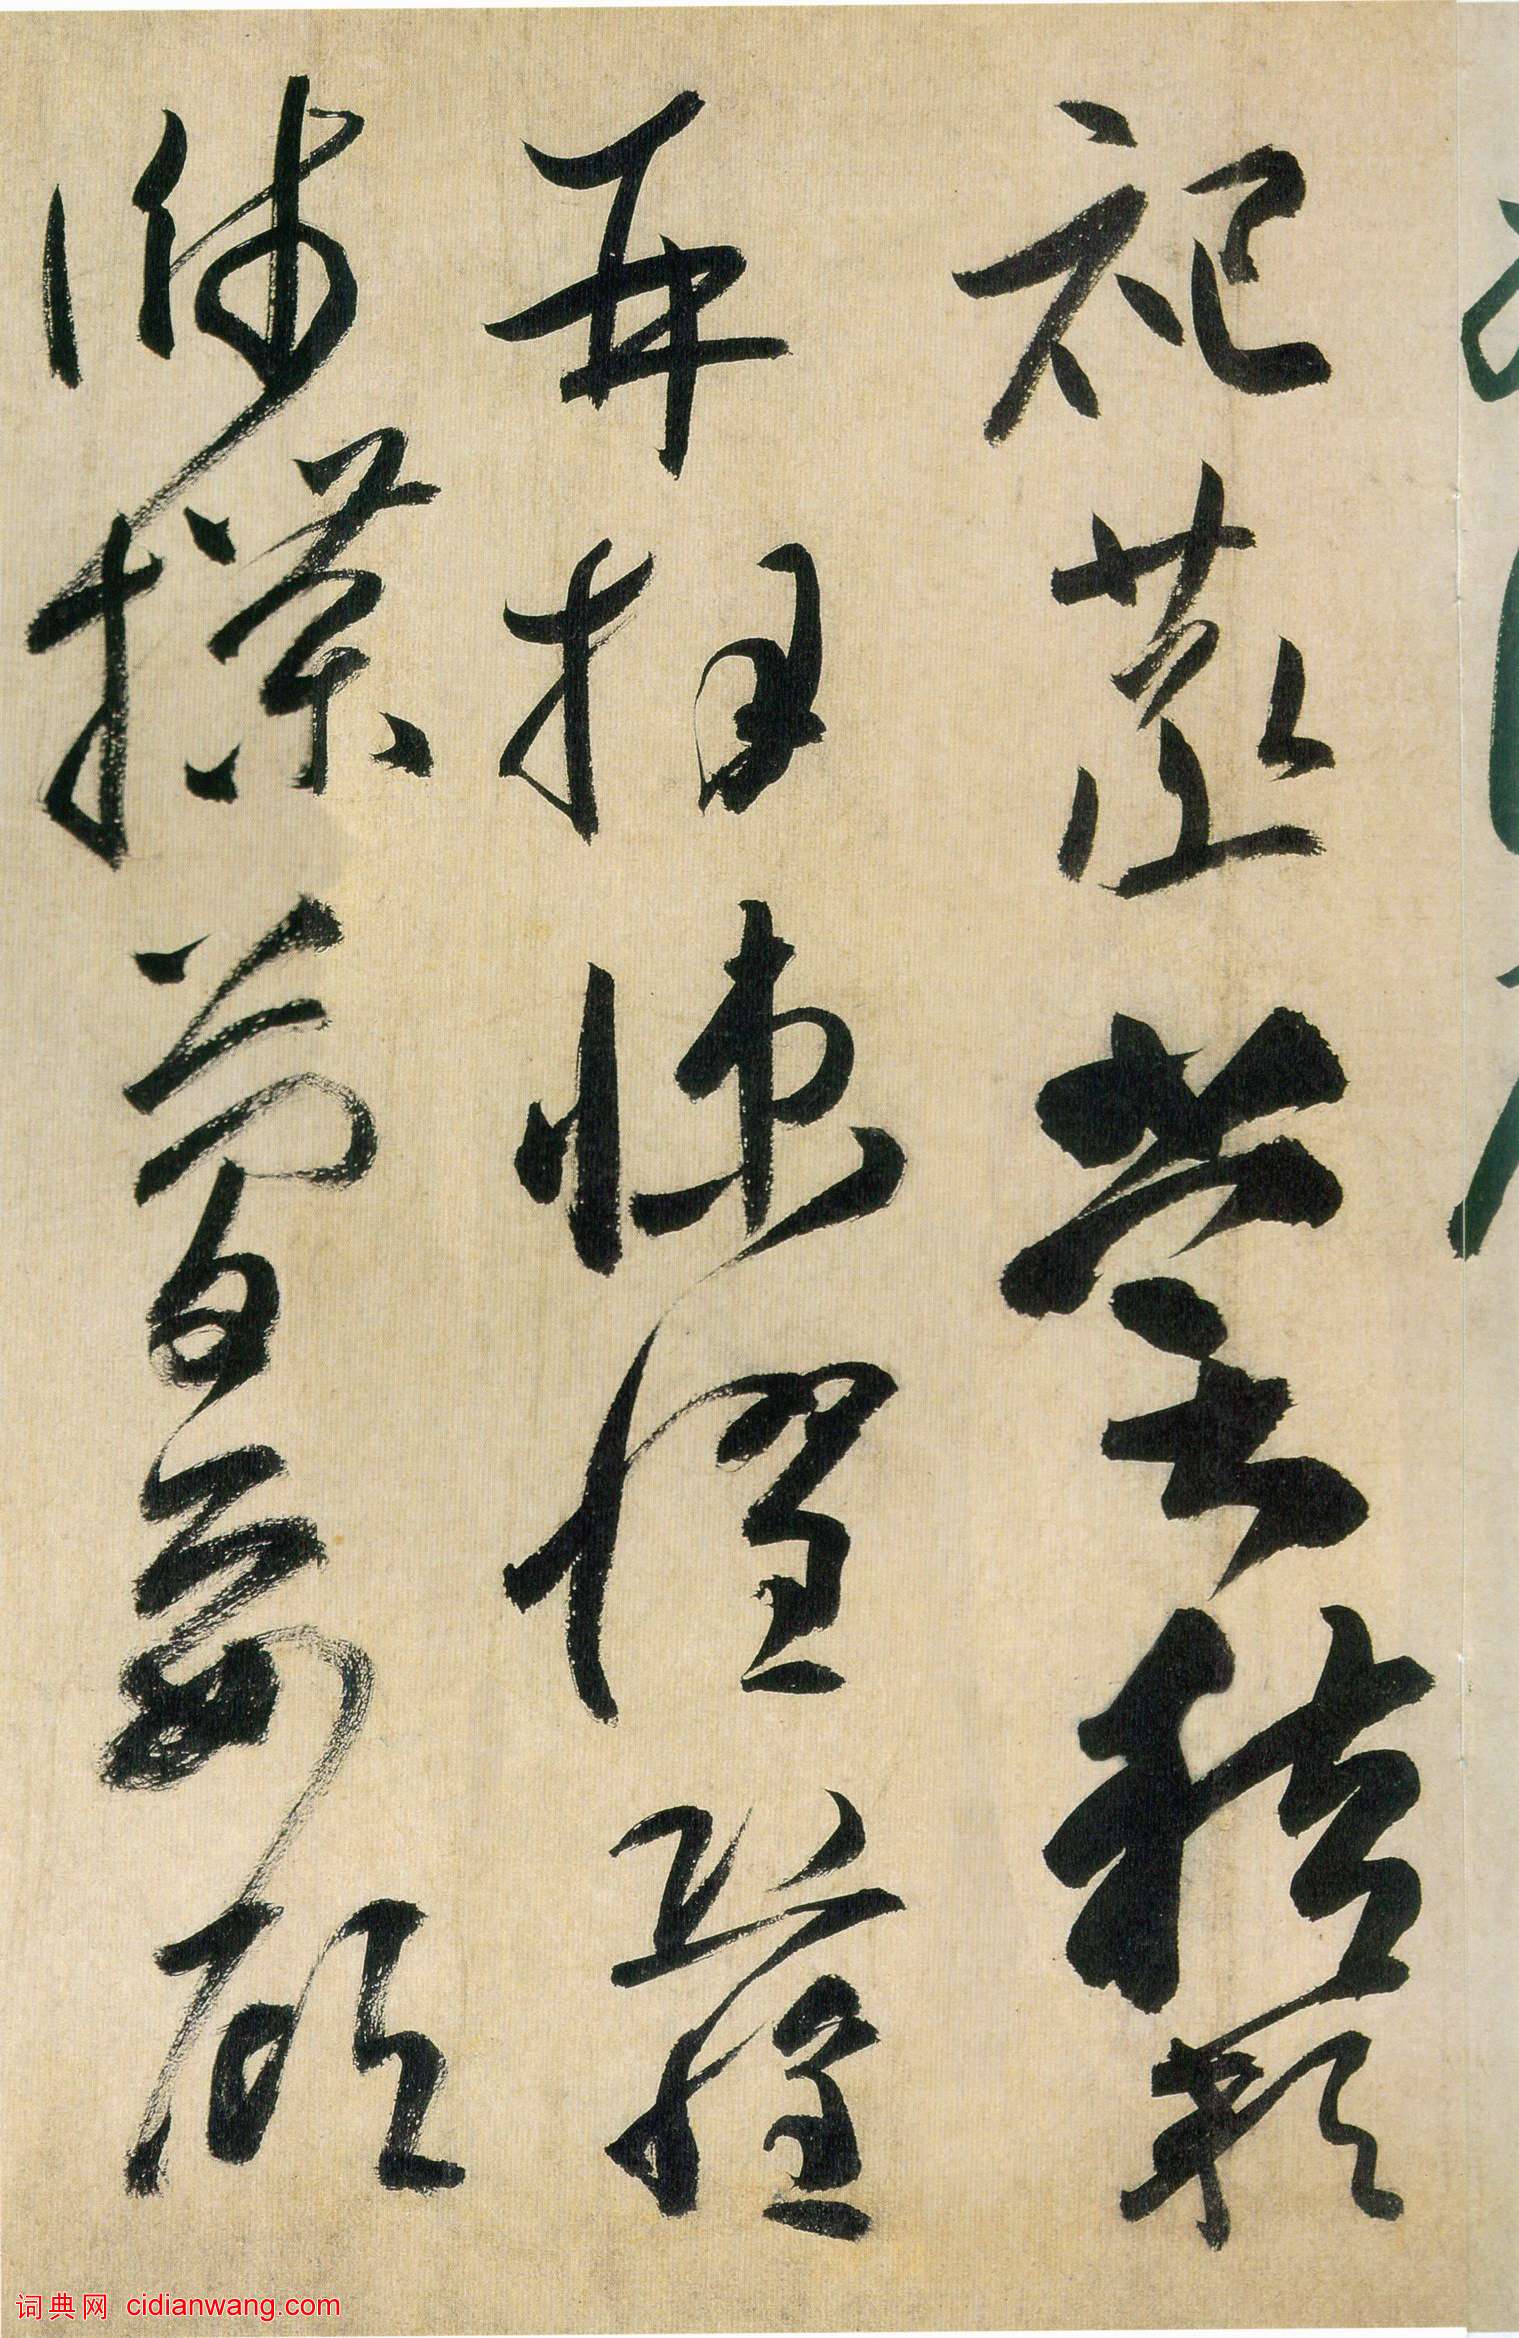 祀蒸嘗稽顙
再拜悚懼恐惶
牋牒簡要顧
词典网 cidianwang.com